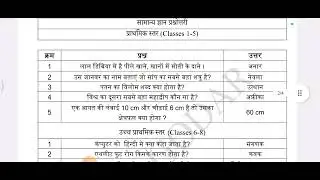 सामान्य ज्ञान प्रश्नोत्तरी
प्राथमिक स्तर (Classes 1-5)
क्रम प्रश्न उत्तर
1 लाल डिबिया में है पीले खाने, खानों में मोती के दाने। अनार
2 उस जानवर का नाम बताएं जो सांप का सबसे बड़ा शत्रु है? नेवला
3 पतन का विलोम शब्द क्या होता है? उत्थान
4 विश्व का दूसरा सबसे बड़ा महाद्वीप कौन सा है? अफ्रीका
5 एक आयत की लंबाई 10 cm और चौड़ाई 6 cm है तो उसका क्षेत्रफल क्या होगा ? 60 cm
उच्च प्राथमिक स्तर (Classes 6-8)
1 कंप्यूटर को हिन्दी में क्या कहा जाता है? संगणक
2 एथलीट फुट रोग किसके कारण होता है? कवक
2/4